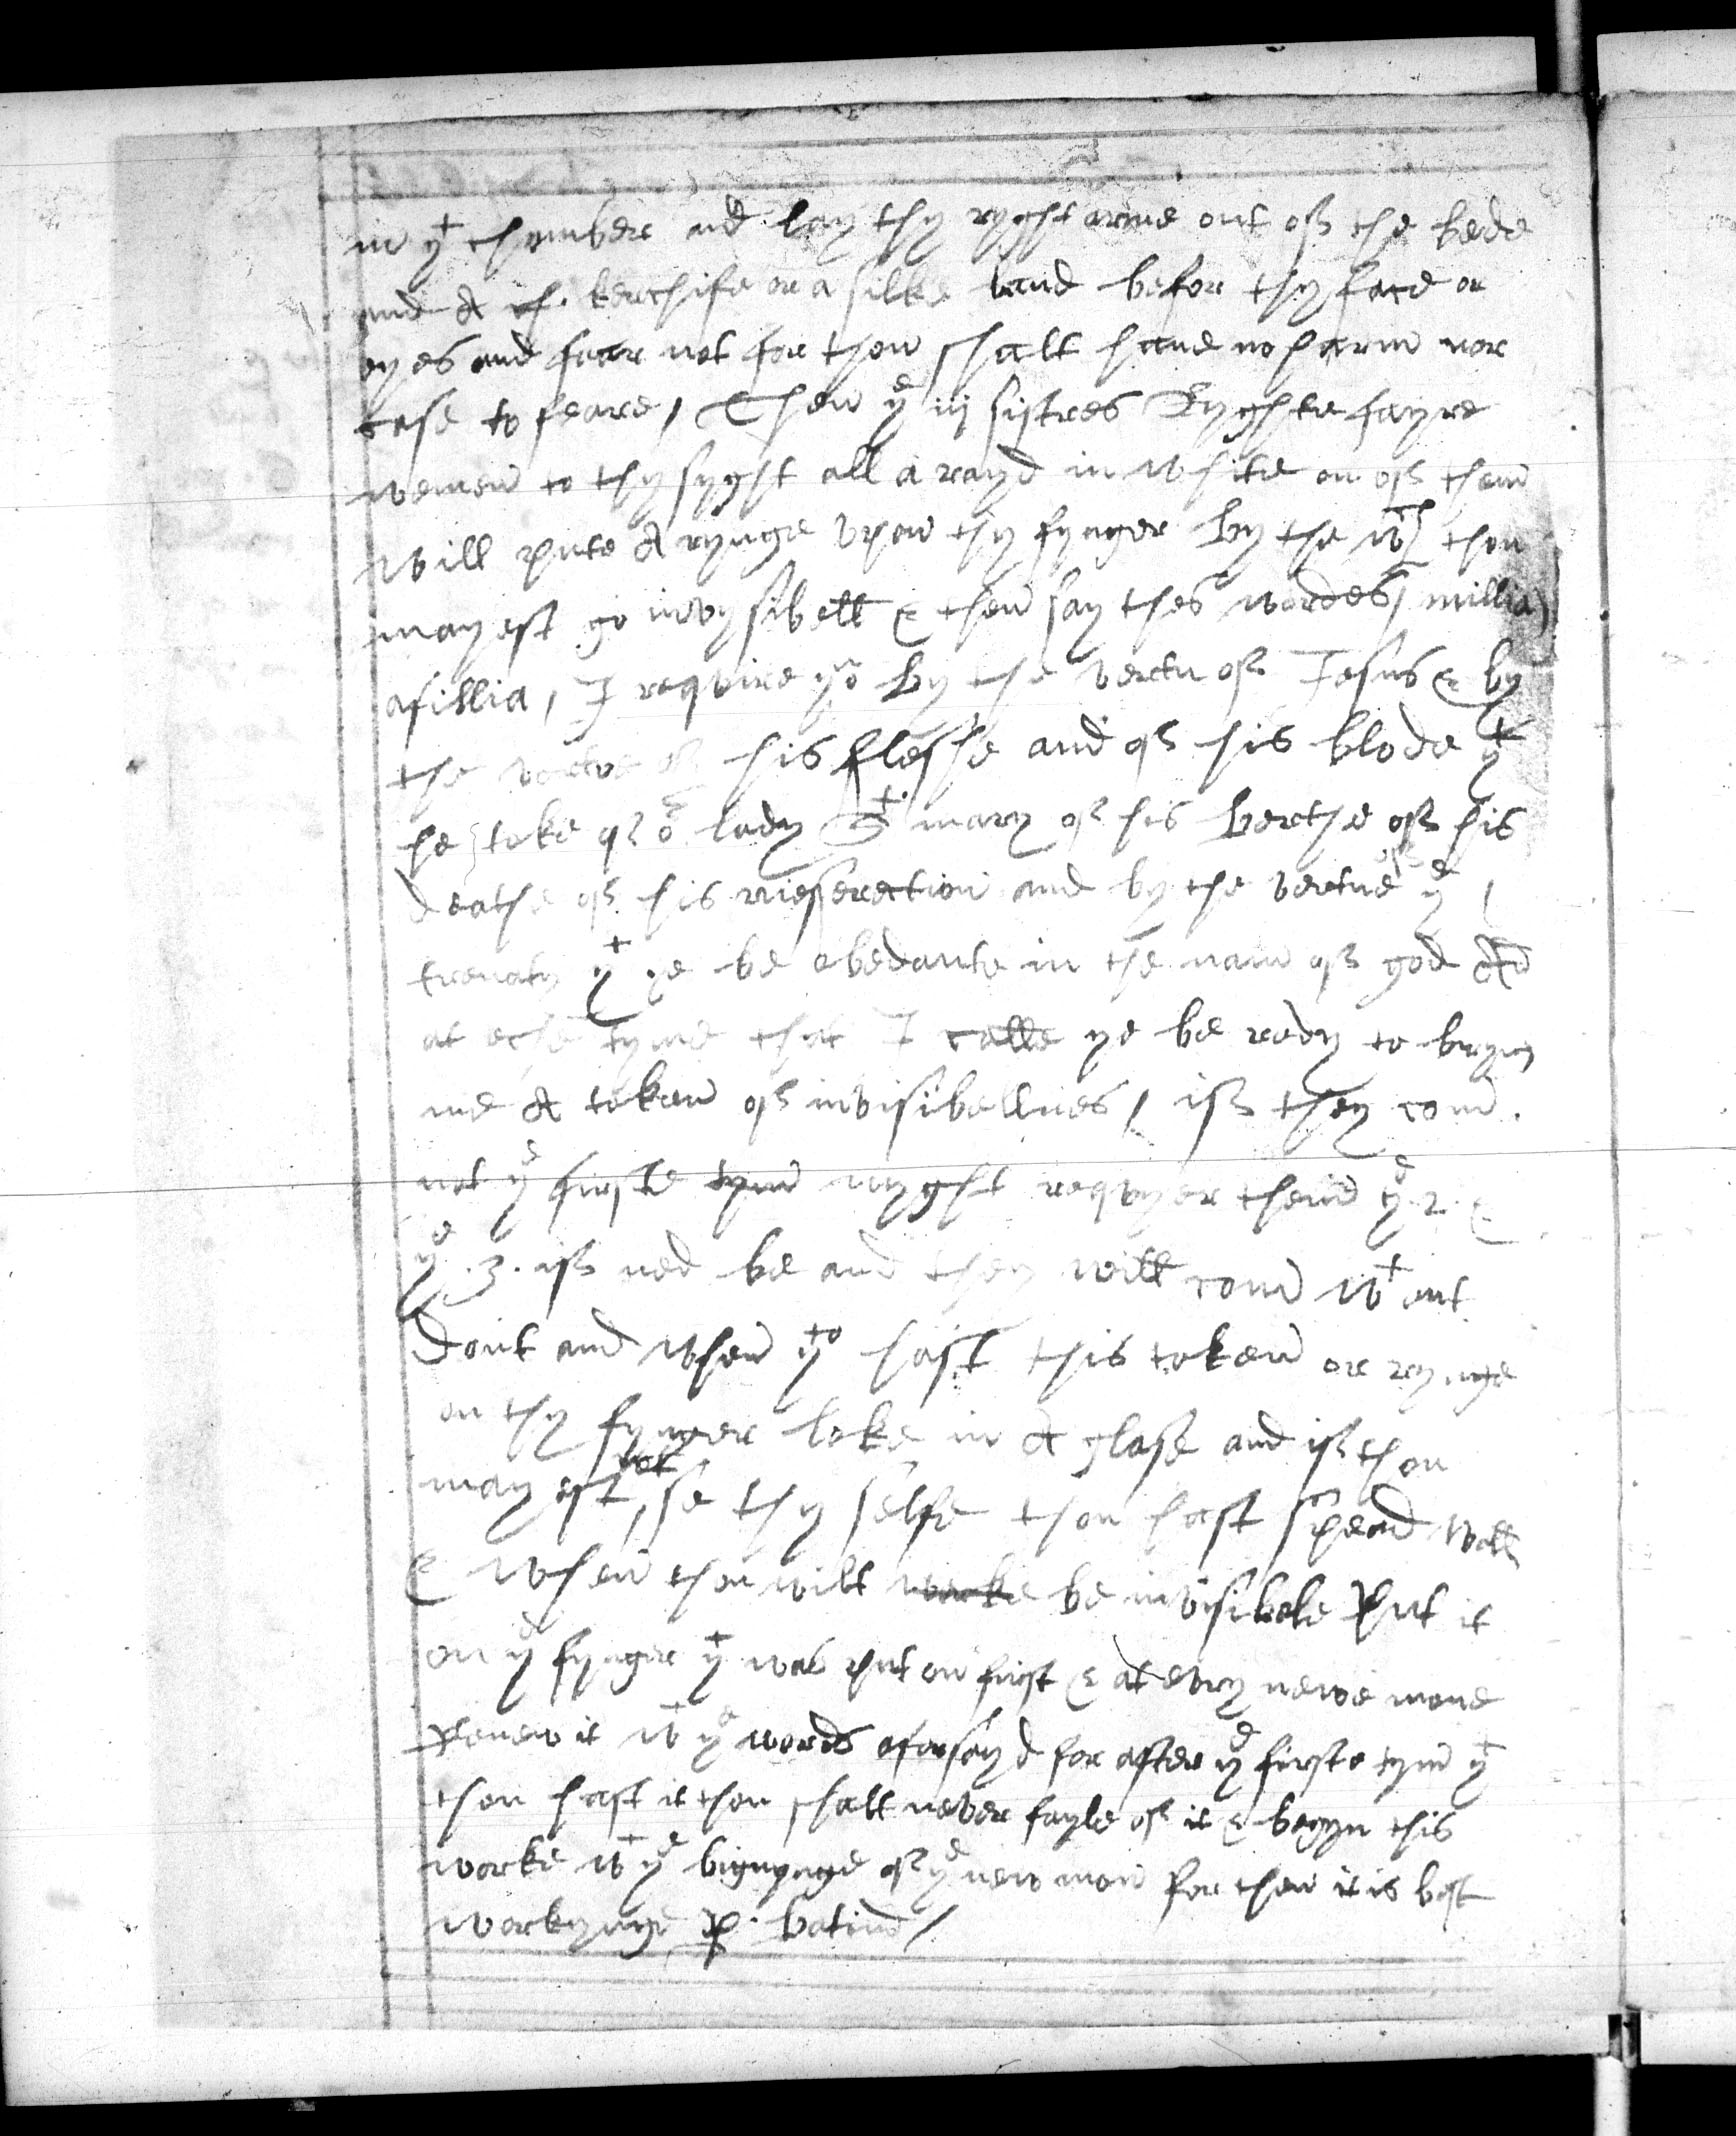 in yt chamber and lay thy ryght arme out off the bede
and A kerchife or a silke band befor thy face or
eyes and fear not for thou shalt haue no harm nor
case to feare / Then ye iij sistres Ryghte fayre
wemen to thy syght all a rayd in white on off them
will pute A rynge vpon thy fynger by the wch thou
mayest go invysibell & then say thes wordes / millia )
afillia , I reqvire you by the vertu off Iesus & by
the vertve off his fleshe and off his blode yt
he toke off or lady St mary off his berthe off his
deathe off his rieserection and by the vertue off ye
yt ye be obedante in the nam off god And
at eche tyme that I calle ye be redy to bryng
me A token off invisibellnes / iff they com .
not ye firste tym nyght reqvyer them ye . 2 . &
ye . 3 . iff ned be and they will com wt out
dout and when yo hast this token or rynge
on thy fynger loke in A glase and iff thou
mayest not se thy selfe thou hast spead well
& when thou wilt worke be invisibele put it
on ye fynger yt was put on first & at evry newe mone
Renew it wt ye words aforsayd for after ye firste tym yt
thou hast it thou shall never fayle off it & begyn this
worke wt ye bignynge off ye new mon for then it is best
workynge p . batim /